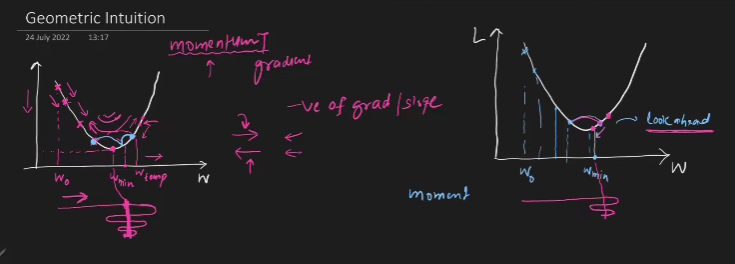 Geometric Intuition
24 July 2022 13:17
momentum I
gradient
-ve of grad/slope
W₀ Wmin Wtemp W
L
look ahead
W₀ Wmin W
moment